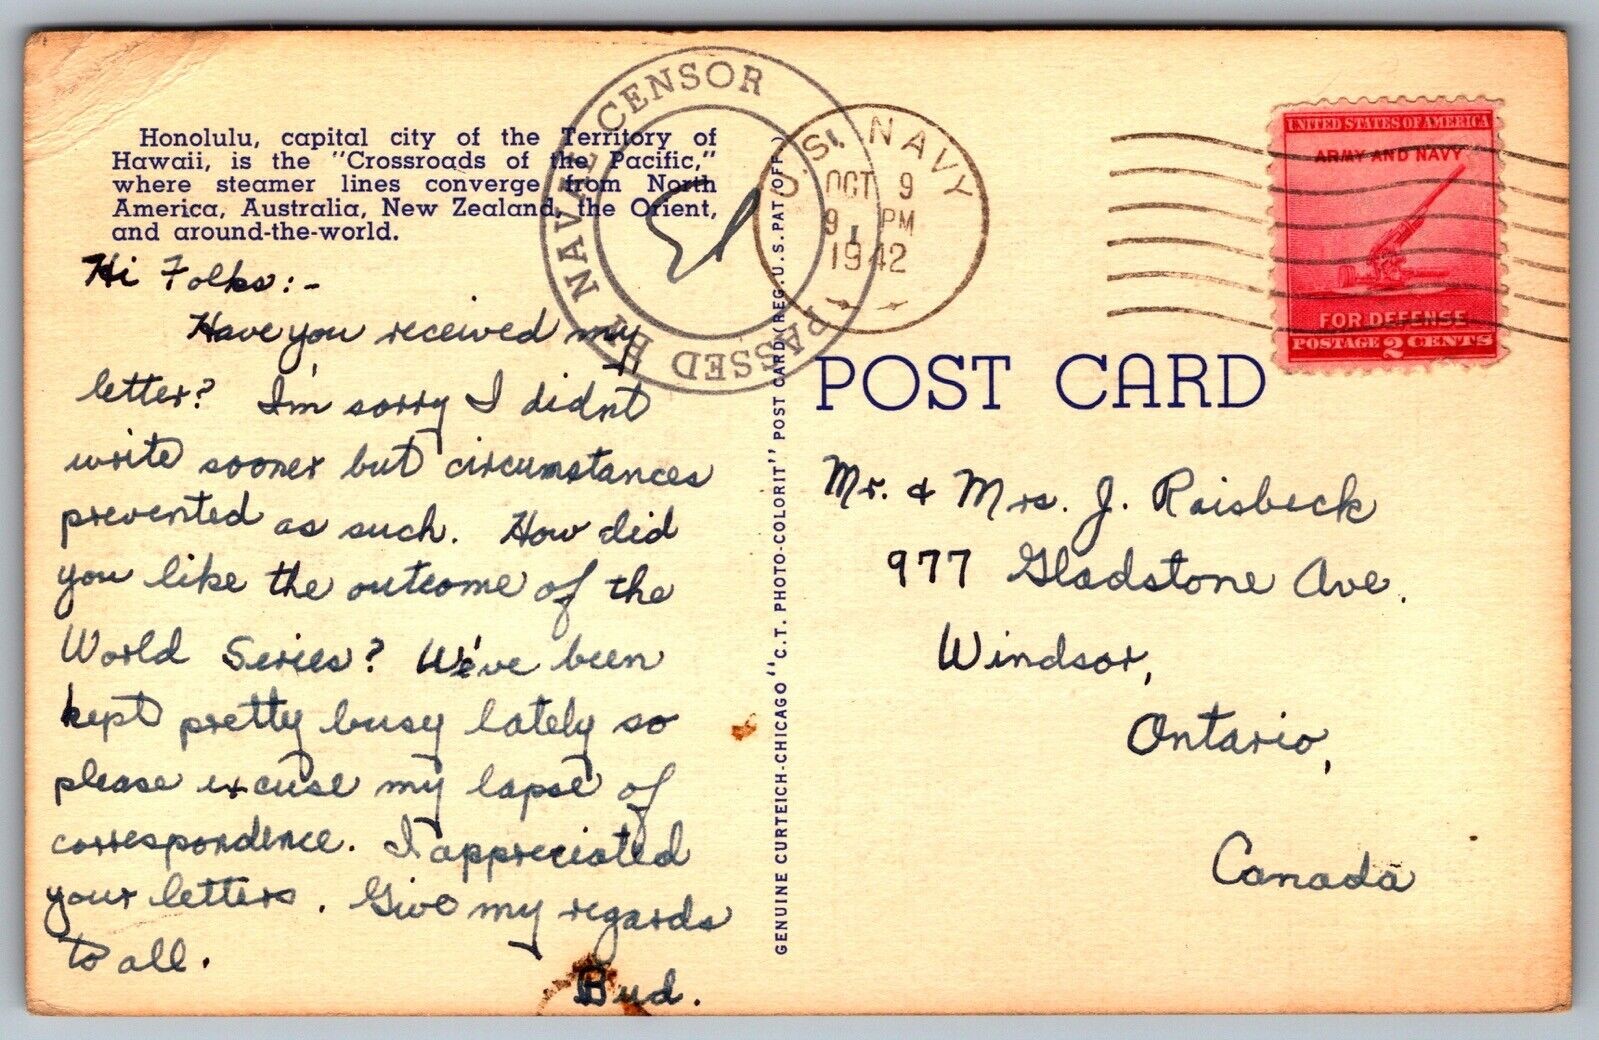 Honolulu, capital city of the Territory of
Hawaii, is the "Crossroads of the Pacific,"
where steamer lines converge from North
America, Australia, New Zealand, the Orient,
and around-the-world.
Hi Folks:-
Have you received my
letter? I'm sorry I didn't
write sooner but circumstances
prevented as such. How did
you like the outcome of the
World Series? We've been
kept pretty busy lately so
please excuse my lapse of
correspondence. I appreciated
your letters. Give my regards
to all.
Bud.
PASSED BY NAVAL CENSOR
U.S. NAVY
OCT 9
9 PM
1942
GENUINE CURTEICH-CHICAGO "C.T. PHOTO-COLORIT" POST CARD (REG. U.S. PAT. OFF.)
UNITED STATES OF AMERICA
ARMY AND NAVY
FOR DEFENSE
POSTAGE 2 CENTS
POST CARD
Mr. & Mrs. J. Raisbeck
977 Gladstone Ave.
Windsor,
Ontario,
Canada